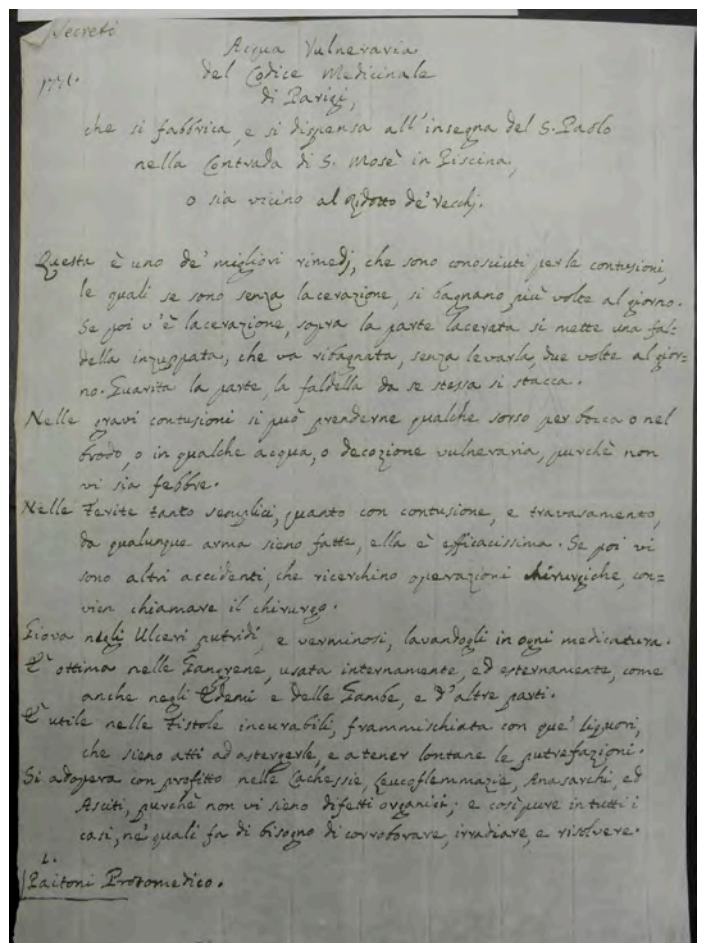 Secreti
1776.
Acqua Vulneraria
del Codice Medicinale
di Parigi,
che si fabbrica, e si dispensa all'insegna del S. Paolo
nella Contrada di S. Mosè in Piscina,
o sia vicino al Ridotto de' Vecchj.
Questa è uno de' migliori rimedj, che sono conosciuti per le contusioni,
le quali se sono senza lacerazione, si bagnano più volte al giorno.
Se poi v'è lacerazione, sopra la parte lacerata si mette una fal=
della inzuppata, che va ribagnata, senza levarla, due volte al gior=
no. Guarita la parte, la faldella da se stessa si stacca.
Nelle gravi contusioni si può prenderne qualche sorso per bocca o nel
brodo, o in qualche acqua, o decozione vulneraria, purchè non
vi sia febbre.
Nelle Ferite tanto semplici, quanto con contusione, e travasamento,
da qualunque arma sieno fatte, ella è efficacissima. Se poi vi
sono altri accidenti, che ricerchino operazioni chirurgiche, con=
vien chiamare il chirurgo.
Giova negli Ulceri putridi, e verminosi, lavandogli in ogni medicatura.
E' ottima nelle Gangrene, usata internamente, ed esternamente, come
anche negli Edemi e delle Gambe, e d'altre parti.
E' utile nelle Fistole incurabili, frammischiata con que' liquori,
che sieno atti ad astergerle, e a tener lontane le putrefazioni.
Si adopera con profitto nelle Cachessie, Leucoflemmazie, Anasarchi, ed
Asciti, purchè non vi sieno difetti organici; e così pure in tutti i
casi, ne' quali fa di bisogno di corroborare, irradiare, e risolvere.
Paitoni Protomedico.